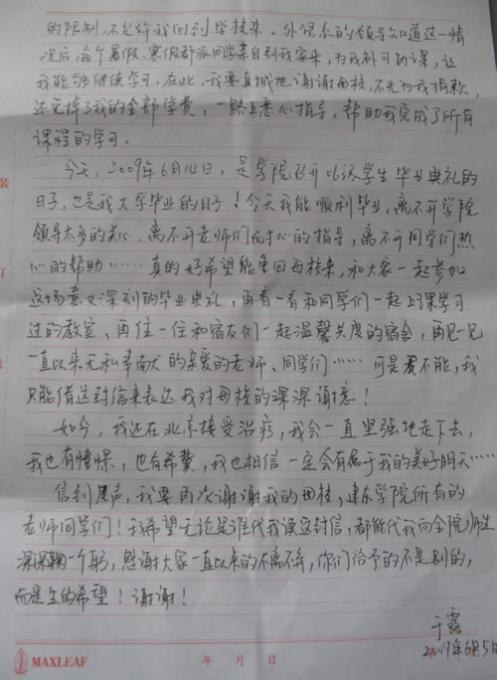 的限制,不允许我回到学校来。外语系的领导知道这一情
况后,每个暑假、寒假都派同学亲自到我家来,为我补习功课,让
我能够继续学习。在此,我要真诚地谢谢母校,不光为我捐款,
还免掉了我的全部学费,一路上悉心指导,帮助我完成了所有
课程的学习。
今天,2009年6月14日,是学院召开06级学生毕业典礼的
日子,也是我大学毕业的日子!今天我能顺利毕业,离不开学院
领导太多的关心,离不开老师们的指导,离不开同学们热
心的帮助……真的好希望能重回母校来,和大家一起参加
这场意义深刻的毕业典礼,再看一看和同学们一起上课学习
过的教室、再住一住和宿友们一起温馨共度的宿舍,再见一见
一直以来无私奉献的亲爱的老师、同学们……可是我不能,我
只能借这封信来表达我对母校的深深谢意!
如今,我还在北京接受治疗,我会一直坚强地走下去,
我也有憧憬,也有希冀,我也相信一定会有属于我的美好明天……
信到尾声,我要再次谢谢我的母校,建东学院所有的
老师同学们!我希望无论是谁代我读这封信,都能代我向全院师生
深深鞠一个躬,感谢大家一直以来的不离不弃,你们给予的不是别的,
而是生的希望!谢谢!
于露
2009年6月5日
MAXLEAF
年 月 日
装
订